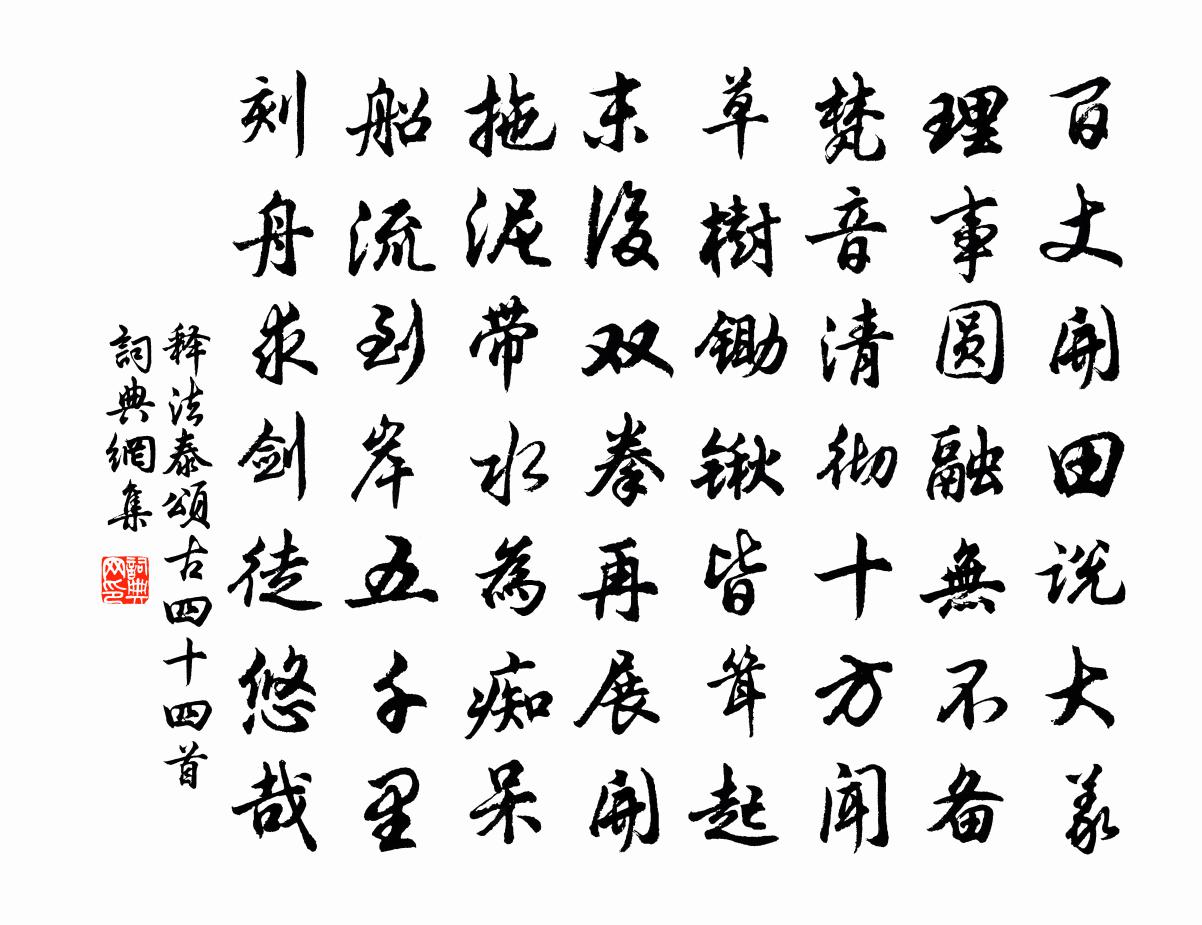 百丈開田说大義
理事圆融無不备
梵音清彻十方聞
草樹鋤锹皆耸起
末後双拳再展開
拖泥带水為痴呆
船流到岸五千里
刻舟求剑徒悠哉
释法泰頌古四十四首
詞典網集
詞典网印